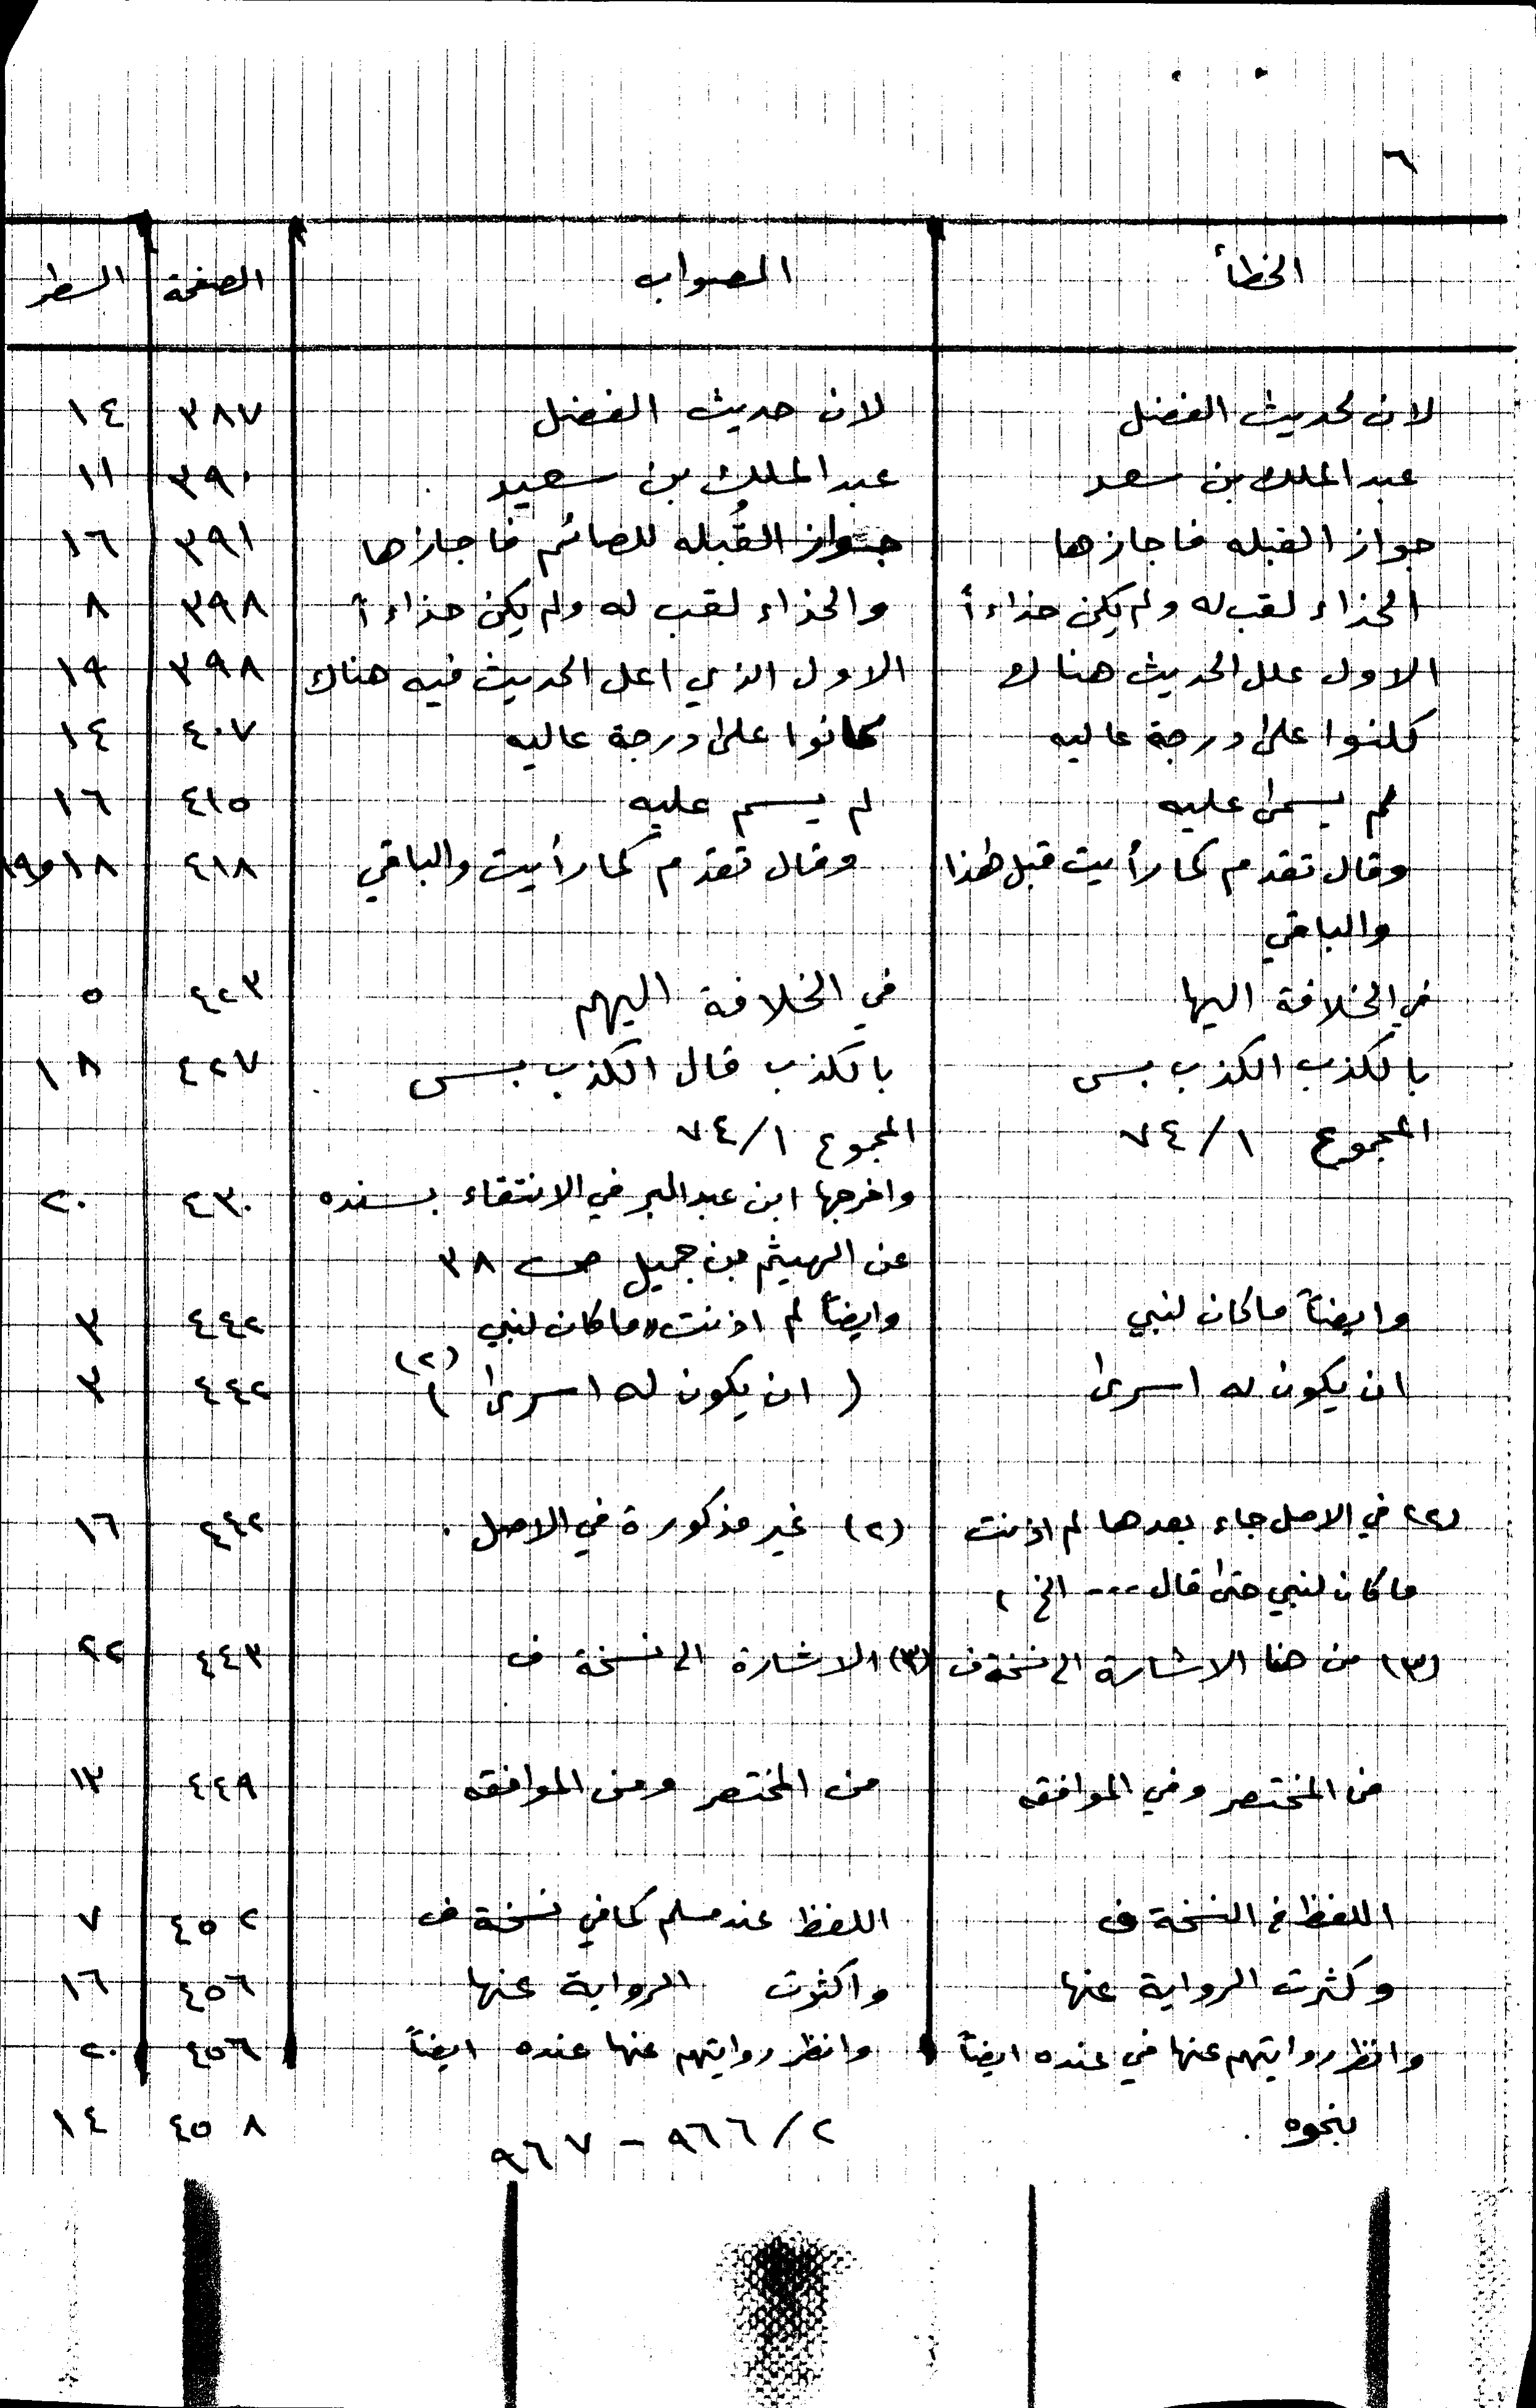 ٦
الخطأ الصواب الصفحة السطر
لان لحديث الفضل لان حديث الفضل ٣٨٧ ١٤
عبد الملك بن سعد عبد الملك بن سعيد ٣٩٠ ١١
جواز القبله فاجازها جواز القُبله للصائم فاجازها ٣٩١ ١٦
الحذاء لقب له ولم يكن حذاءأ والحذاء لقب له ولم يكن حذاءأ ٣٩٨ ٨
الاول علل الحديث هناك الاول الذي اعل الحديث فيه هناك ٣٩٨ ١٩
كلنوا على درجة عاليه كانوا على درجة عاليه ٤٠٧ ١٤
لم يسمى عليه لم يسم عليه ٤١٥ ١٦
وقال تقدم كما رأيت قبل هذا وقال تقدم كما رأيت والباقي ٤١٨ ١٨ و١٩
والباقي
في الخلافة اليها في الخلافة اليهم ٤٢٣ ٥
بالكذب الكذب بسى بالكذب قال الكذب بسى ٤٢٧ ١٨
المجموع ٧٤/١ المجموع ٧٤/١
واخرجها ابن عبد البر في الانتقاء بسنده ٤٣٠ ٢٠
عن الهيثم بن جميل ص ٣٨
وايضاً ماكان لنبي وايضاً لم اذنت، ماكان لنبي ٤٤٢ ٣
ان يكون له اسرى ( ان يكون له اسرى ) (٢) ٤٤٢ ٣
(٢) في الاصل جاء بعدها لم اذنت (٢) غير مذكورة في الاصل . ٤٤٢ ١٦
ماكان لنبي حتى قال ... الخ ،
(٣) من هنا الاشارة الى نسخة ف (٣) الاشارة الى نسخة ف ٤٤٣ ٢٢
من المختصر وفي الموافقه من المختصر ومن الموافقه ٤٤٩ ١٣
اللفظ في النسخة ف اللفظ عند مسلم كما في نسخة ف ٤٥٢ ٧
وكثرت الرواية عنها واكثرت الرواية عنها ٤٥٦ ١٦
وانظر روايتهم عنها في عنده ايضاً وانظر روايتهم عنها عنده ايضاً ٤٥٦ ٢٠
بنحوه ٩٦٦/٢ - ٩٦٧ ٤٥٨ ١٤